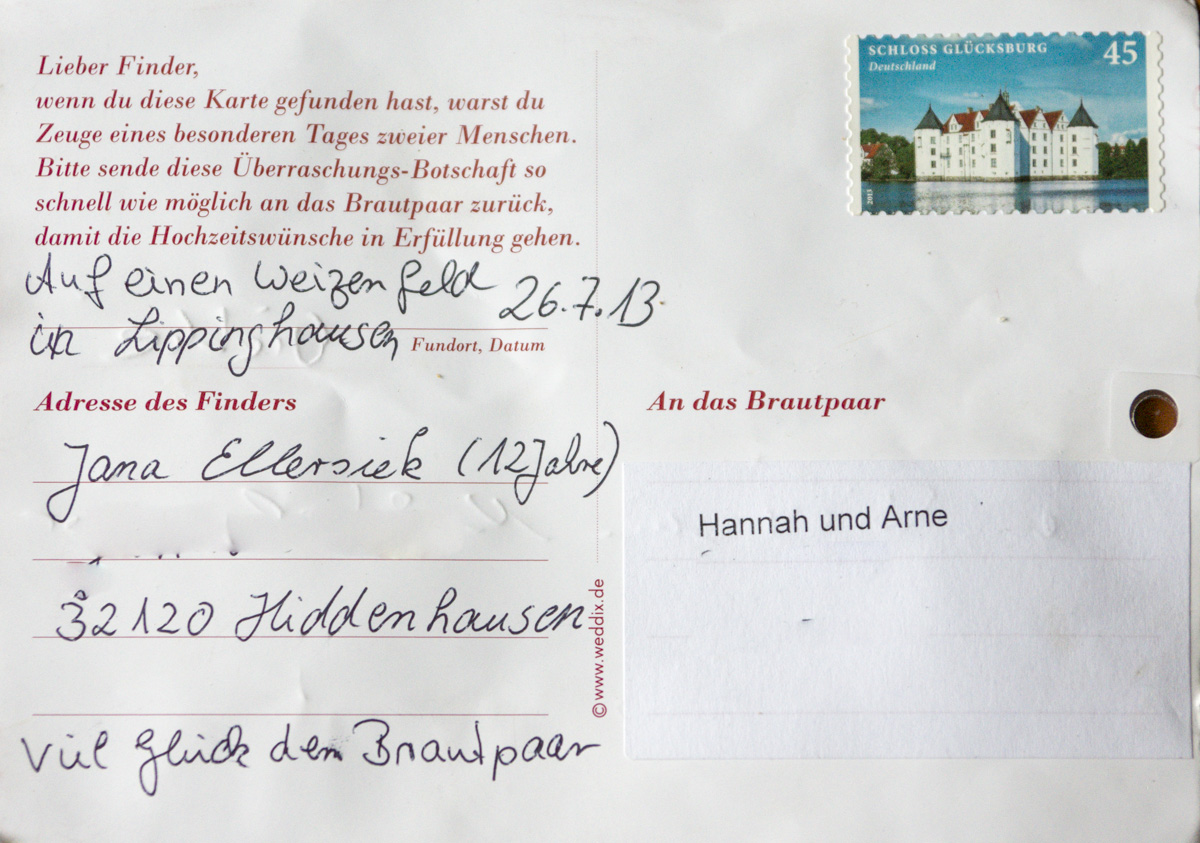 Lieber Finder,
wenn du diese Karte gefunden hast, warst du
Zeuge eines besonderen Tages zweier Menschen.
Bitte sende diese Überraschungs-Botschaft so
schnell wie möglich an das Brautpaar zurück,
damit die Hochzeitswünsche in Erfüllung gehen.
Auf einen Weizenfeld 26.7.13
in Lippinghausen
Fundort, Datum
Adresse des Finders
Jana Ellersiek (12 Jahre)
32120 Hiddenhausen
Viel Glück dem Brautpaar
© www.weddix.de
SCHLOSS GLÜCKSBURG 45
Deutschland
2013
An das Brautpaar
Hannah und Arne